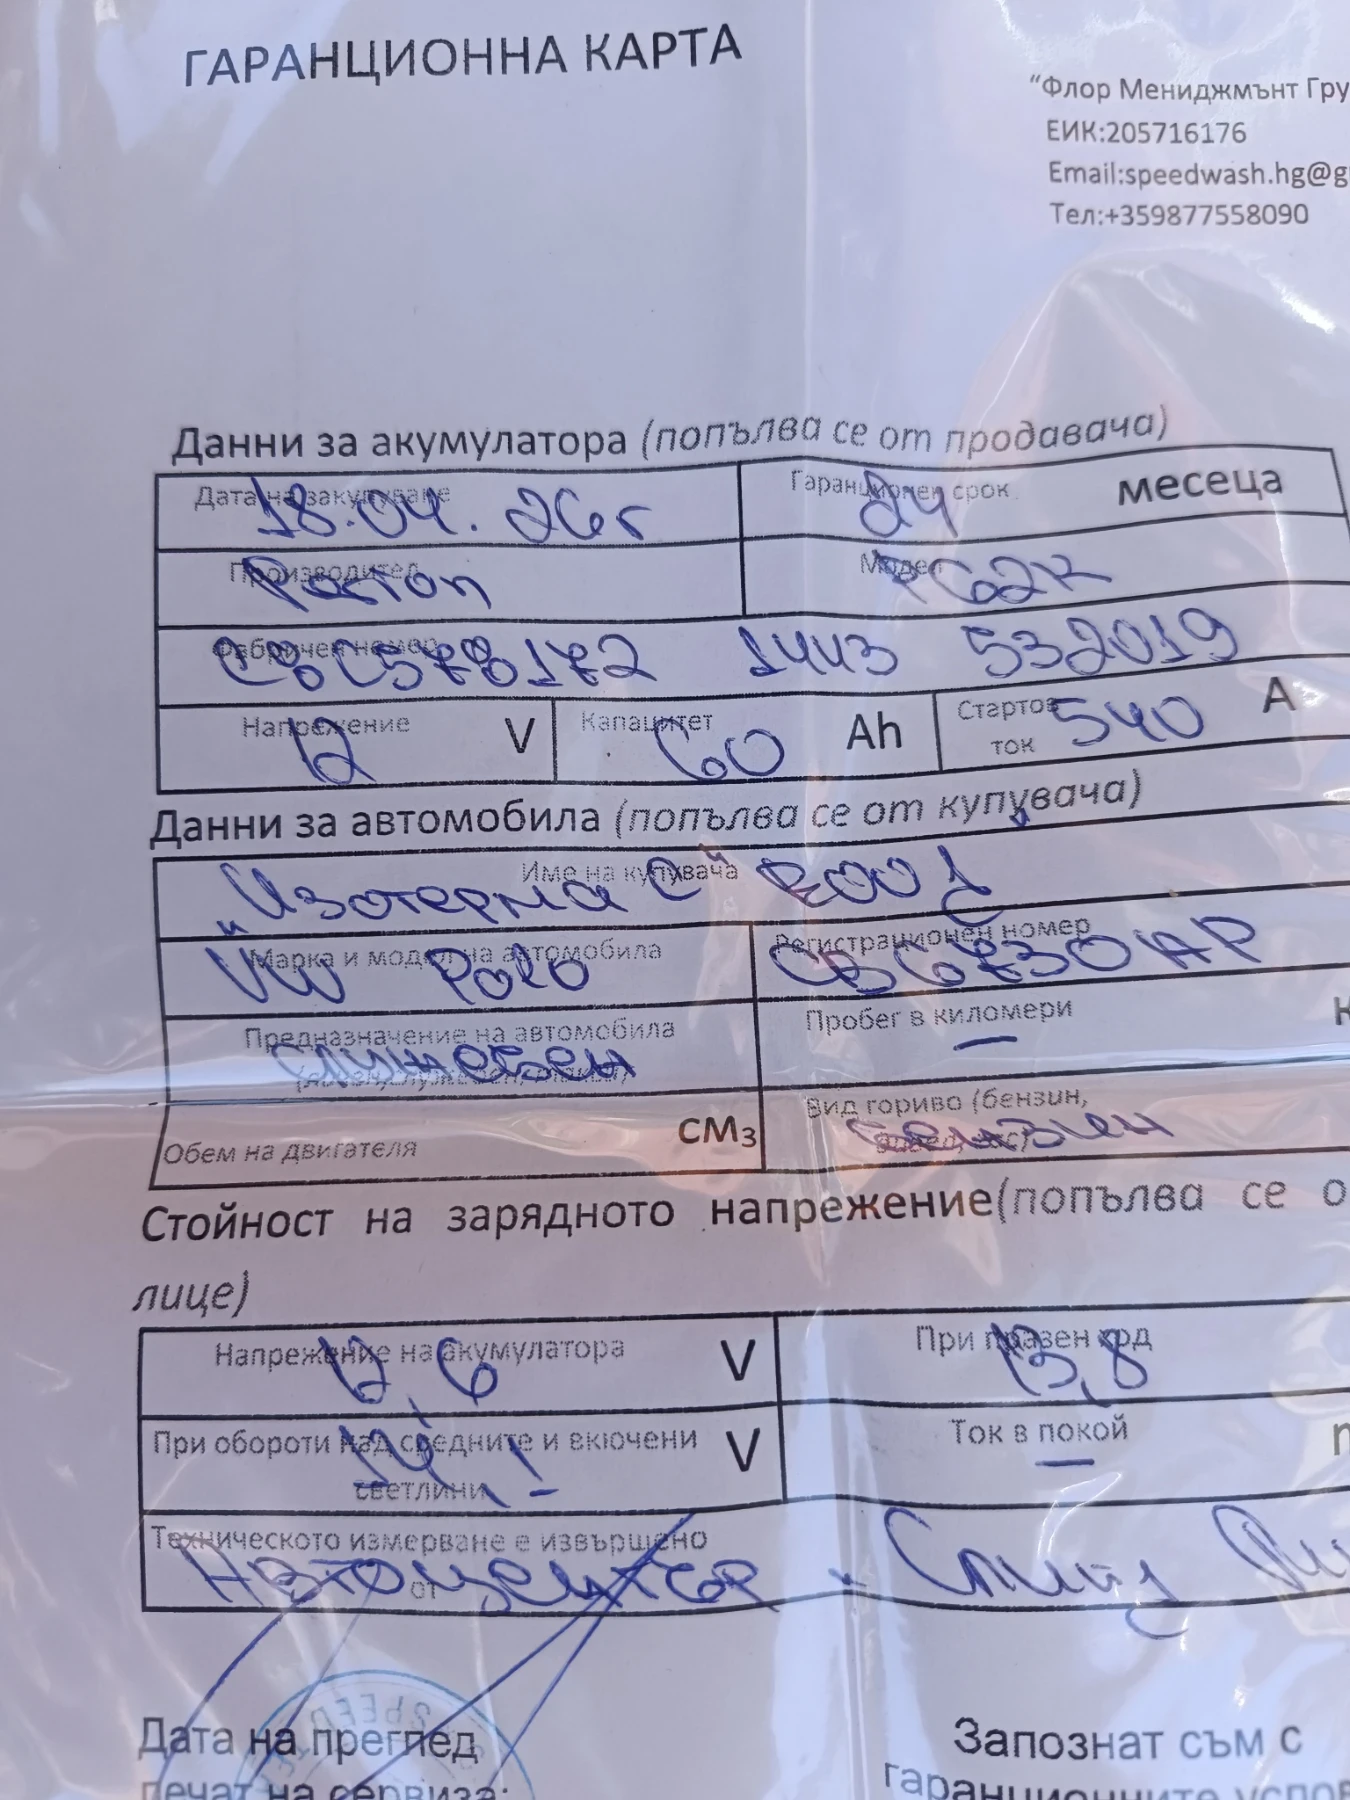 ГАРАНЦИОННА КАРТА
"Флор Мениджмънт Гру
ЕИК:205716176
Email:speedwash.hg@g
Тел:+359877558090
Данни за акумулатора (попълва се от продавача)
Дата на закупуване 18.04.26г Гаранционен срок 24 месеца
Производител Ростоп Модел
Фабричен номер 1443 532019
Напрежение 12 V Капацитет 60 Ah Стартов ток 540 A
Данни за автомобила (попълва се от купувача)
Име на купувача "Изотерма С"
Марка и модел на автомобила VW Polo Регистрационен номер
Предназначение на автомобила служебен Пробег в километри —
Обем на двигателя см3 Вид гориво (бензин, бензин
Стойност на зарядното напрежение(попълва се о
лице)
Напрежение на акумулатора 12,6 V При празен ход 13,8
При обороти над средните и вкючени светлини V Ток в покой —
Техническото измерване е извършено от Автоцентър
Дата на преглед
печат на сервиза:
Запознат съм с
гаранционните усло